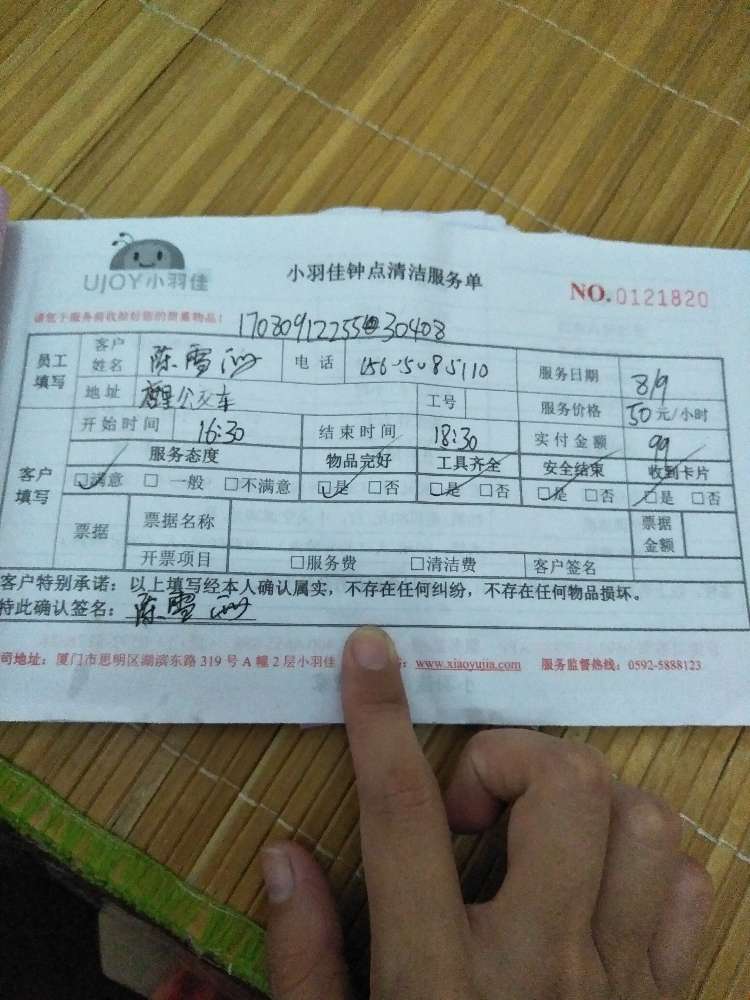 UJOY小羽佳
小羽佳钟点清洁服务单
NO.0121820
请您于服务前收拾好您的贵重物品！
1708091225530408
员工填写 客户姓名 陈雪 电话 服务日期 8/9
地址 公交车 工号 服务价格 50元/小时
客户填写 开始时间 16:30 结束时间 18:30 实付金额 99
服务态度 物品完好 工具齐全 安全结束 收到卡片
□满意 □一般 □不满意 □是 □否 □是 □否 □是 □否 □是 □否
票据 票据名称 票据金额
开票项目 □服务费 □清洁费 客户签名
客户特别承诺：以上填写经本人确认属实，不存在任何纠纷，不存在任何物品损坏。
特此确认签名：陈雪
司地址：厦门市思明区湖滨东路 319 号 A 幢 2 层小羽佳 www.xiaoyujia.com 服务监督热线：0592-5888123